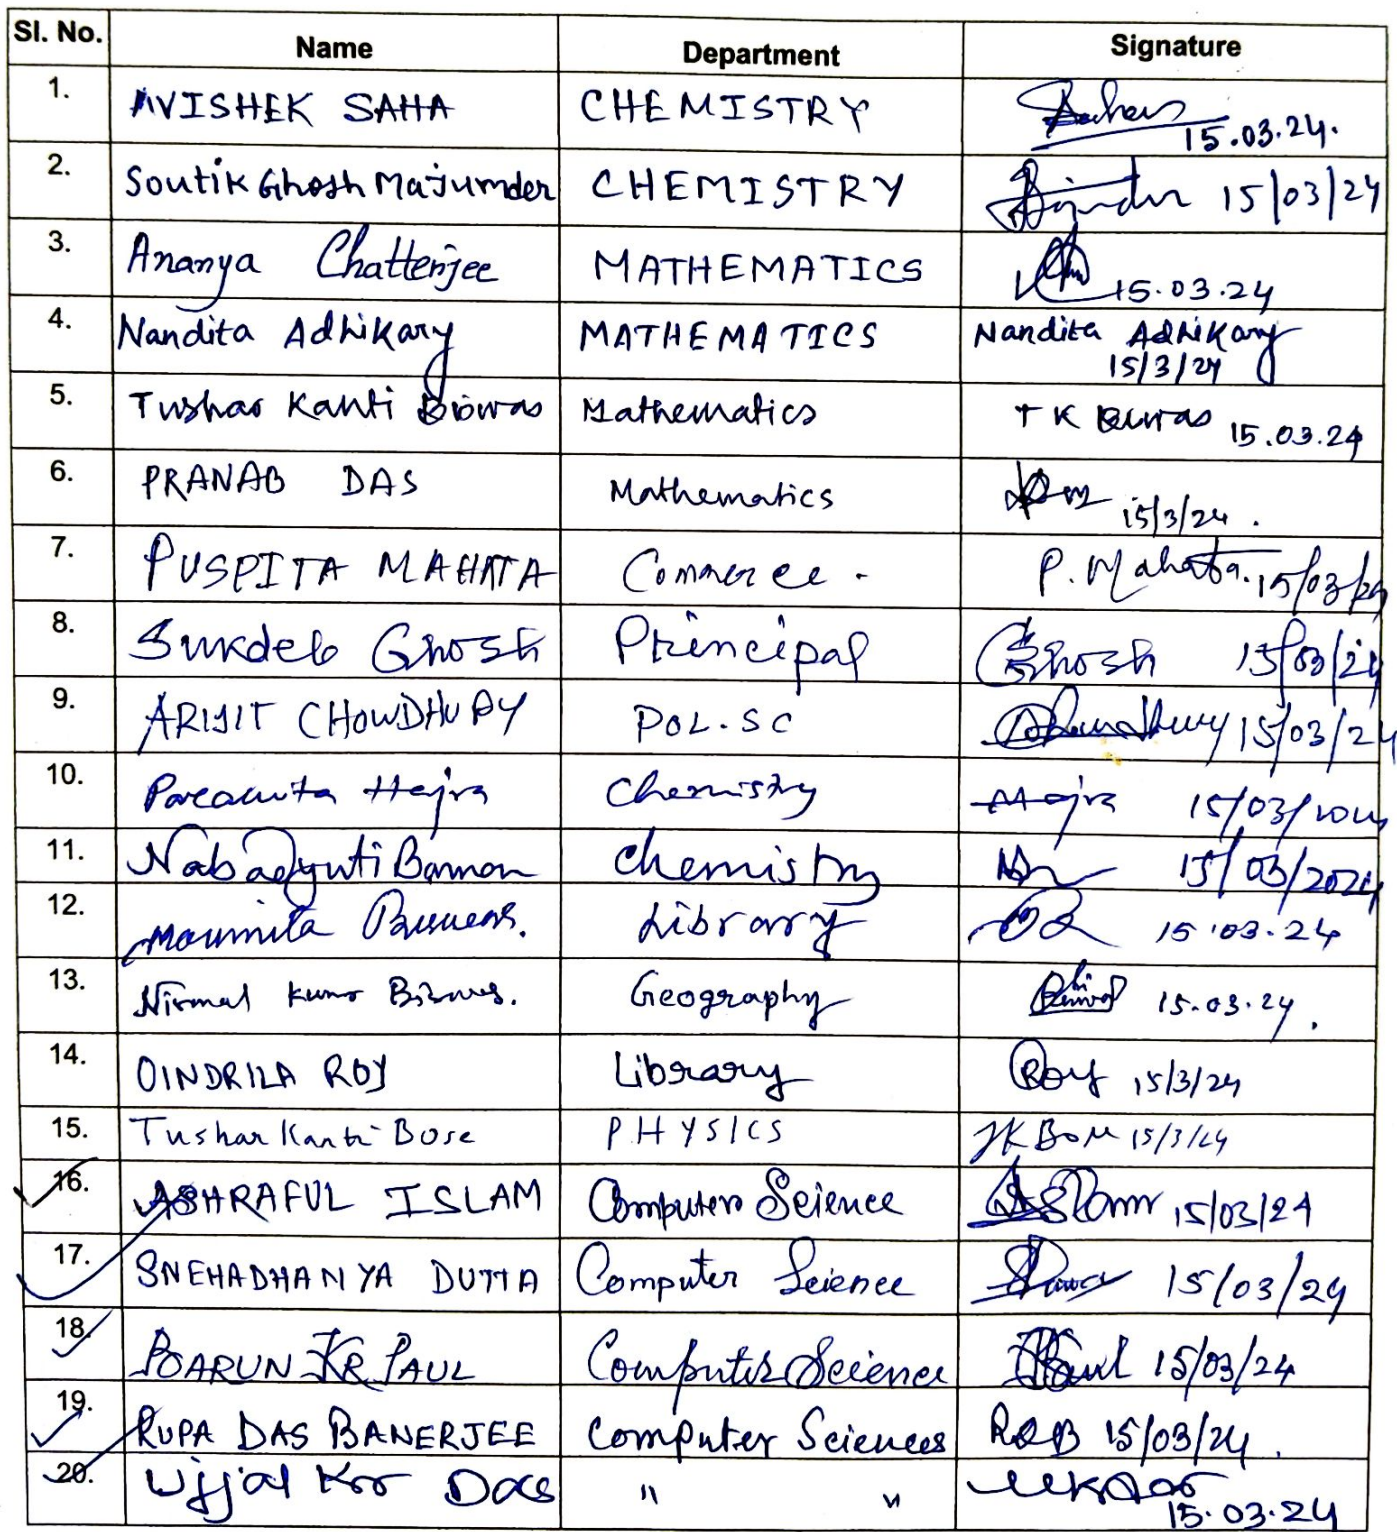 Sl. No. Name Department Signature
1. AVISHEK SAHA CHEMISTRY 15.03.24.
2. Soutik Ghosh Majumder CHEMISTRY 15/03/24
3. Ananya Chatterjee MATHEMATICS 15.03.24
4. Nandita Adhikary MATHEMATICS Nandita Adhikary
15/3/24
5. Tushar Kanti Biswas Mathematics T K Biswas 15.03.24
6. PRANAB DAS Mathematics 15/3/24.
7. PUSPITA MAHATA Commerce. P. Mahata. 15/03/24
8. Sukdeb Ghosh Principal Ghosh 15/03/24
9. ARIJIT CHOWDHURY POL.SC Chowdhury 15/03/24
10. Paramita Hajra Chemistry Hajra 15/03/2024
11. Nabadyuti Barman Chemistry 15/03/2024
12. Moumita Library 15.03.24
13. Nirmal Kumar Biswas. Geography 15.03.24.
14. OINDRILA ROY Library Roy 15/3/24
15. Tushar Kanti Bose PHYSICS TK Bose 15/3/24
16. ASHRAFUL ISLAM Computer Science Islam 15/03/24
17. SNEHADHANYA DUTTA Computer Science 15/03/24
18. BARUN KR PAUL Computer Science Paul 15/03/24
19. RUPA DAS BANERJEE Computer Sciences RDB 15/03/24.
20. Ujjal Kr Das " " UKDas
15.03.24